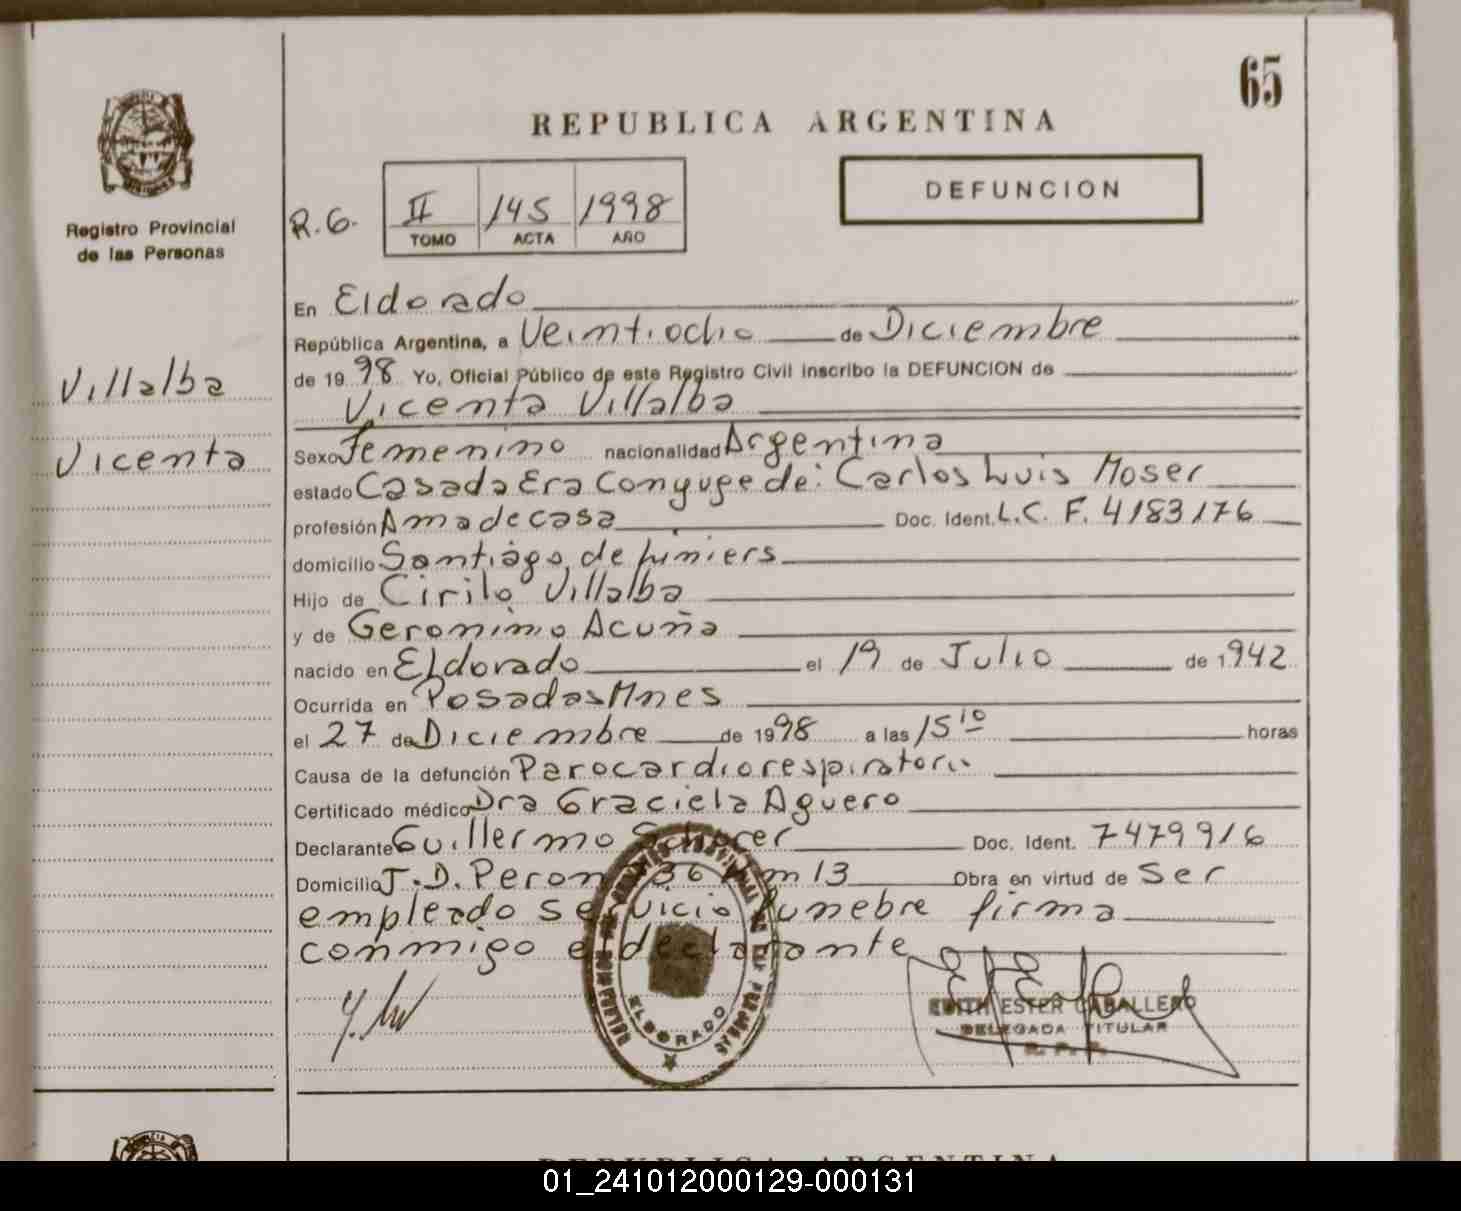 65
REPUBLICA ARGENTINA
DEFUNCION
Registro Provincial
de las Personas
R.G. II 145 1998
TOMO ACTA AÑO
Villalba
Vicenta
En Eldorado
República Argentina, a Veintiocho de Diciembre
de 1998 Yo, Oficial Público de este Registro Civil inscribo la DEFUNCION de
Vicenta Villalba
Sexo Femenino nacionalidad Argentina
estado Casada Era Conyuge de: Carlos Luis Moser
profesión Ama de casa Doc. Ident. L.C. F. 4183176
domicilio Santiago de Liniers
Hijo de Cirilo Villalba
y de Geronimo Acuña
nacido en Eldorado el 19 de Julio de 1942
Ocurrida en Posadas Mnes
el 27 de Diciembre de 1998 a las 15 10 horas
Causa de la defunción Parocardiorespiratorio
Certificado médico Dra Graciela Aguero
Declarante Guillermo Doc. Ident. 7479916
Domicilio J.D. Peron Km 13 Obra en virtud de Ser
empleado servicio funebre firma
conmigo el declarante
ELDORADO
EDITH ESTER CABALLERO
DELEGADA TITULAR
R. P. P.
REPUBLICA ARGENTINA
01_241012000129-000131